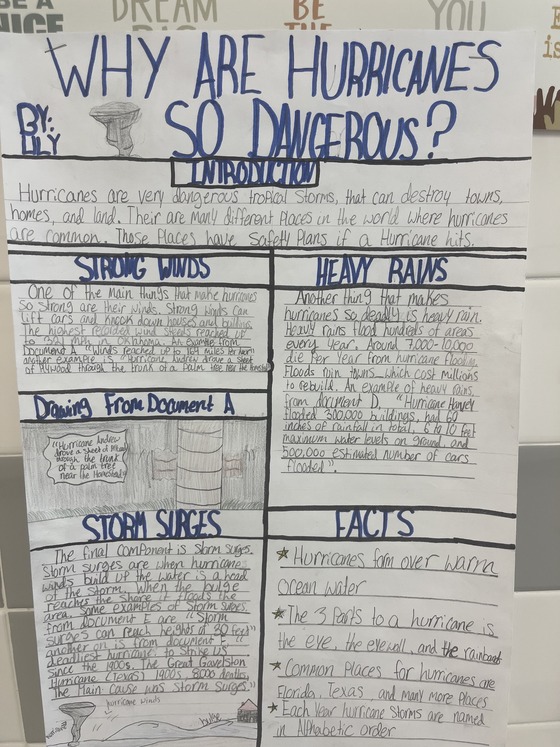 BE A
NICE
DREAM
BIG
BE
THE
YOU
WHY ARE HURRICANES
SO DANGEROUS?
BY:
LILY
INTRODUCTION
Hurricanes are very dangerous tropical storms, that can destroy towns,
homes, and land. Their are many different places in the world where hurricanes
are common. Those places have safety plans if a hurricane hits.
STRONG WINDS
One of the main things that make hurricanes
so strong are their winds. Strong winds can
lift cars and knock down houses and
the highest recorded wind speeds reached up
to 321 mph in Oklahoma. An example from
Document A "Winds reached up to 164 miles per hour"
another example is "Hurricane Andrew drove a sheet
of plywood through the trunk of a palm tree near the homestead"
Drawing From Document A
"Hurricane Andrew
drove a sheet of
through the trunk
of a palm tree
near the Homestead"
STORM SURGES
The final component is storm surges.
Storm surges are when hurricane
winds build up the water is a head
of the storm. When the bulge
reaches the shore it floods the
area. some examples of storm surges
from document E are "storm
surges can reach heights of 30 feet"
another on is from document E "
deadliest hurricane to strike US
since the 1900s. The Great Gavelston
Hurricane (Texas) 1900s 8,000 deaths,
the main cause was storm surges."
hurricane winds
HEAVY RAINS
Another thing that makes
hurricanes so deadly is heavy rain.
Heavy rains flood hundreds of areas
every year. Around 7,000-10,000
die per year from hurricane flooding.
Floods ruin towns which cost millions
to rebuild. An example of heavy rains
from document D "Hurricane Harvey
flooded 300,000 buildings, had 60
inches of rainfall in total, 6 to 10 feet
maximum water levels on ground, and
500,000 estimated number of cars
flooded".
FACTS
Hurricanes form over warm
ocean water
The 3 Parts to a hurricane is
the eye, the eyewall, and the rainband
Common places for hurricanes are
Florida, Texas, and many more places
Each year hurricane storms are named
in Alphabetic order